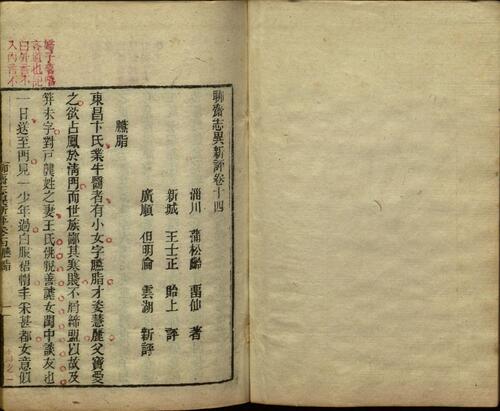 聊齋志異新評卷十四
淄川 蒲松齡 留仙 著
新城 王士正 貽上 評
廣順 但明倫 雲湖 新評
臙脂
東昌卞氏業牛醫者有小女字臙脂才姿慧麗父寶愛
之欲占鳳於清門而世族鄙其寒賤不屑締盟以故及
笄未字對戶龔姓之妻王氏佻脫善謔女閨中談友也
一日送至門見一少年過白服裙帽丰采甚都女意似